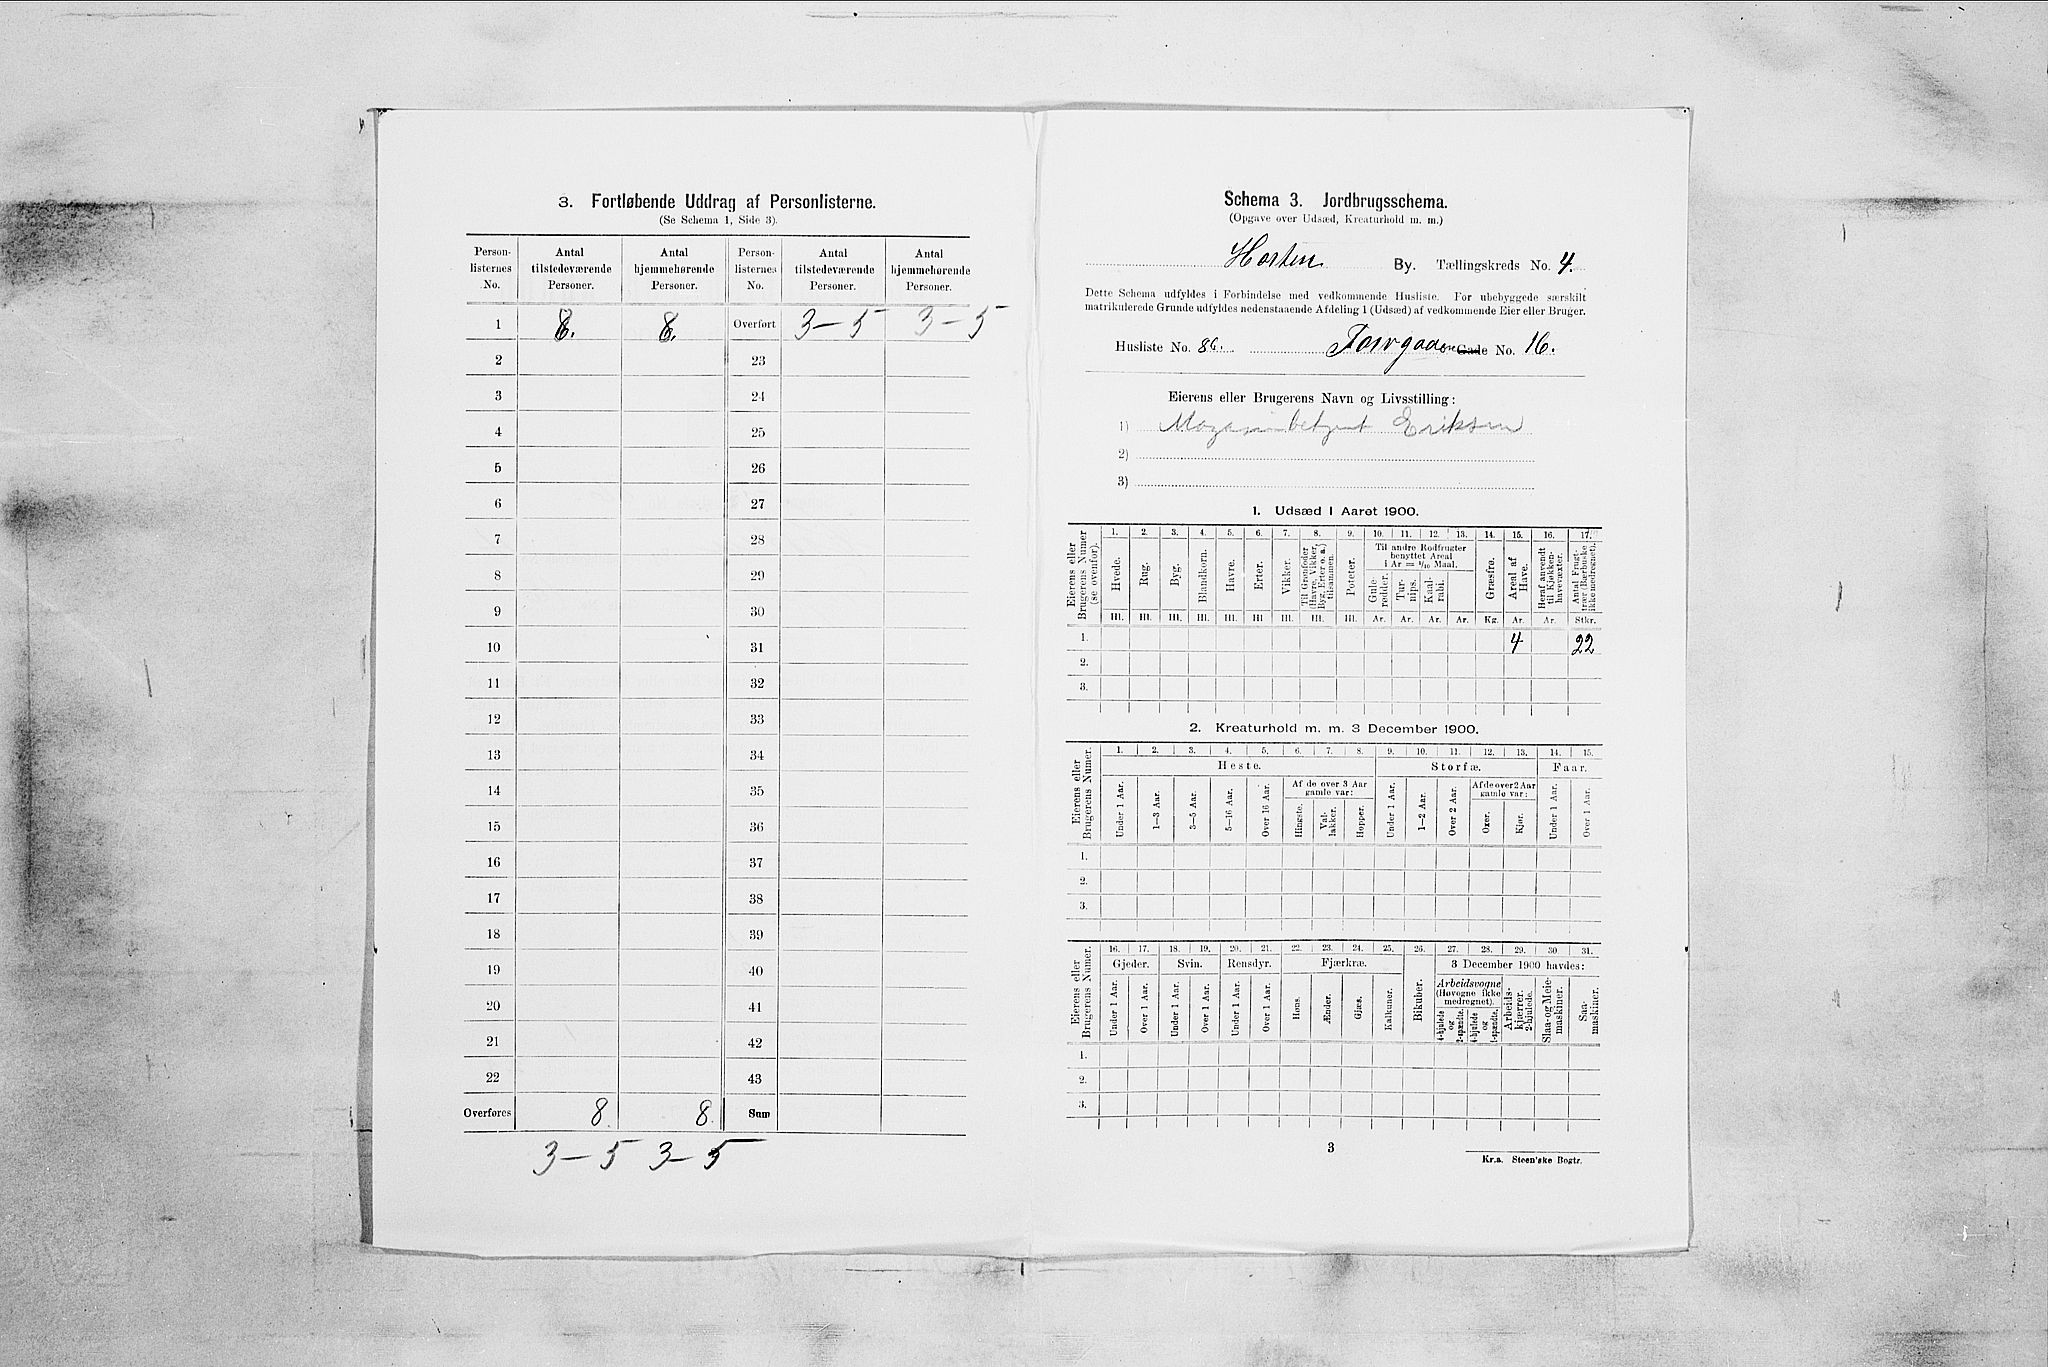 3. Fortløbende Uddrag af Personlisterne.
(Se Schema 1, Side 3).
Person-listernes No. | Antal tilstedeværende Personer. | Antal hjemmehørende Personer. | Person-listernes No. | Antal tilstedeværende Personer. | Antal hjemmehørende Personer.
1 | 8. | 8. | Overført | 3–5 | 3–5
2 | 23
3 | 24
4 | 25
5 | 26
6 | 27
7 | 28
8 | 29
9 | 30
10 | 31
11 | 32
12 | 33
13 | 34
14 | 35
15 | 36
16 | 37
17 | 38
18 | 39
19 | 40
20 | 41
21 | 42
22 | 43
Overføres | 8. | 8. | Sum
3–5 3–5
Schema 3. Jordbrugsschema.
(Opgave over Udsæd, Kreaturhold m. m.)
Horten By. Tællingskreds No. 4.
Dette Schema udfyldes i Forbindelse med vedkommende Husliste. For ubebyggede særskilt
matrikulerede Grunde udfyldes nedenstaaende Afdeling 1 (Udsæd) af vedkommende Eier eller Bruger.
Husliste No. 86. Torvgaden Gade No. 16.
Eierens eller Brugerens Navn og Livsstilling:
1) Magasinbetjent Eriksen
2)
3)
1. Udsæd i Aaret 1900.
1. 2. 3. 4. 5. 6. 7. 8. 9. 10. 11. 12. 13. 14. 15. 16. 17.
Eierens eller Brugerens Numer (se ovenfor). | Hvede. | Rug. | Byg. | Blandkorn. | Havre. | Erter. | Vikker. | Til Grønfoder (Havre, Vikker, Byg, Erter o. a.) tilsammen. | Poteter. | Til andre Rodfrugter benyttet Areal i Ar = 1/10 Maal. | Gulerødder. | Turnips. | Kaalrabi. | Græsfrø. | Areal af Have. | Heraf anvendt til Kjøkkenhavevæxter. | Antal Frugttrær (Bærbuske ikke medregnet).
Hl. Hl. Hl. Hl. Hl. Hl. Hl. Hl. Hl. Ar. Ar. Ar. Ar. Kg. Ar. Ar. Stkr.
1. 4 22
2.
3.
2. Kreaturhold m. m. 3 December 1900.
1. 2. 3. 4. 5. 6. 7. 8. 9. 10. 11. 12. 13. 14. 15.
Eierens eller Brugerens Numer. | Heste. | Storfæ. | Faar.
Af de over 3 Aar gamle var: | Af de over 2 Aar gamle var:
Under 1 Aar. | 1–3 Aar. | 3–5 Aar. | 5–16 Aar. | Over 16 Aar. | Hingste. | Vallakker. | Hopper. | Under 1 Aar. | 1–2 Aar. | Over 2 Aar. | Oxer. | Kjør. | Under 1 Aar. | Over 1 Aar.
1.
2.
3.
16. 17. 18. 19. 20. 21. 22. 23. 24. 25. 26. 27. 28. 29. 30. 31.
Eierens eller Brugerens Numer. | Gjeder. | Svin. | Rensdyr. | Fjærkræ. | Bikuber. | 3 December 1900 havdes:
Arbeidsvogne (Høvogne ikke medregnet).
Under 1 Aar. | Over 1 Aar. | Under 1 Aar. | Over 1 Aar. | Under 1 Aar. | Over 1 Aar. | Høns. | Ænder. | Gjæs. | Kalkuner. | 4-hjulede og 2-spændte. | 4-hjulede og 1-spændte. | Arbeidskjerrer, 2-hjulede. | Slaa- og Meiemaskiner. | Saamaskiner.
1.
2.
3.
3
Kr.a. Steen'ske Bogtr.